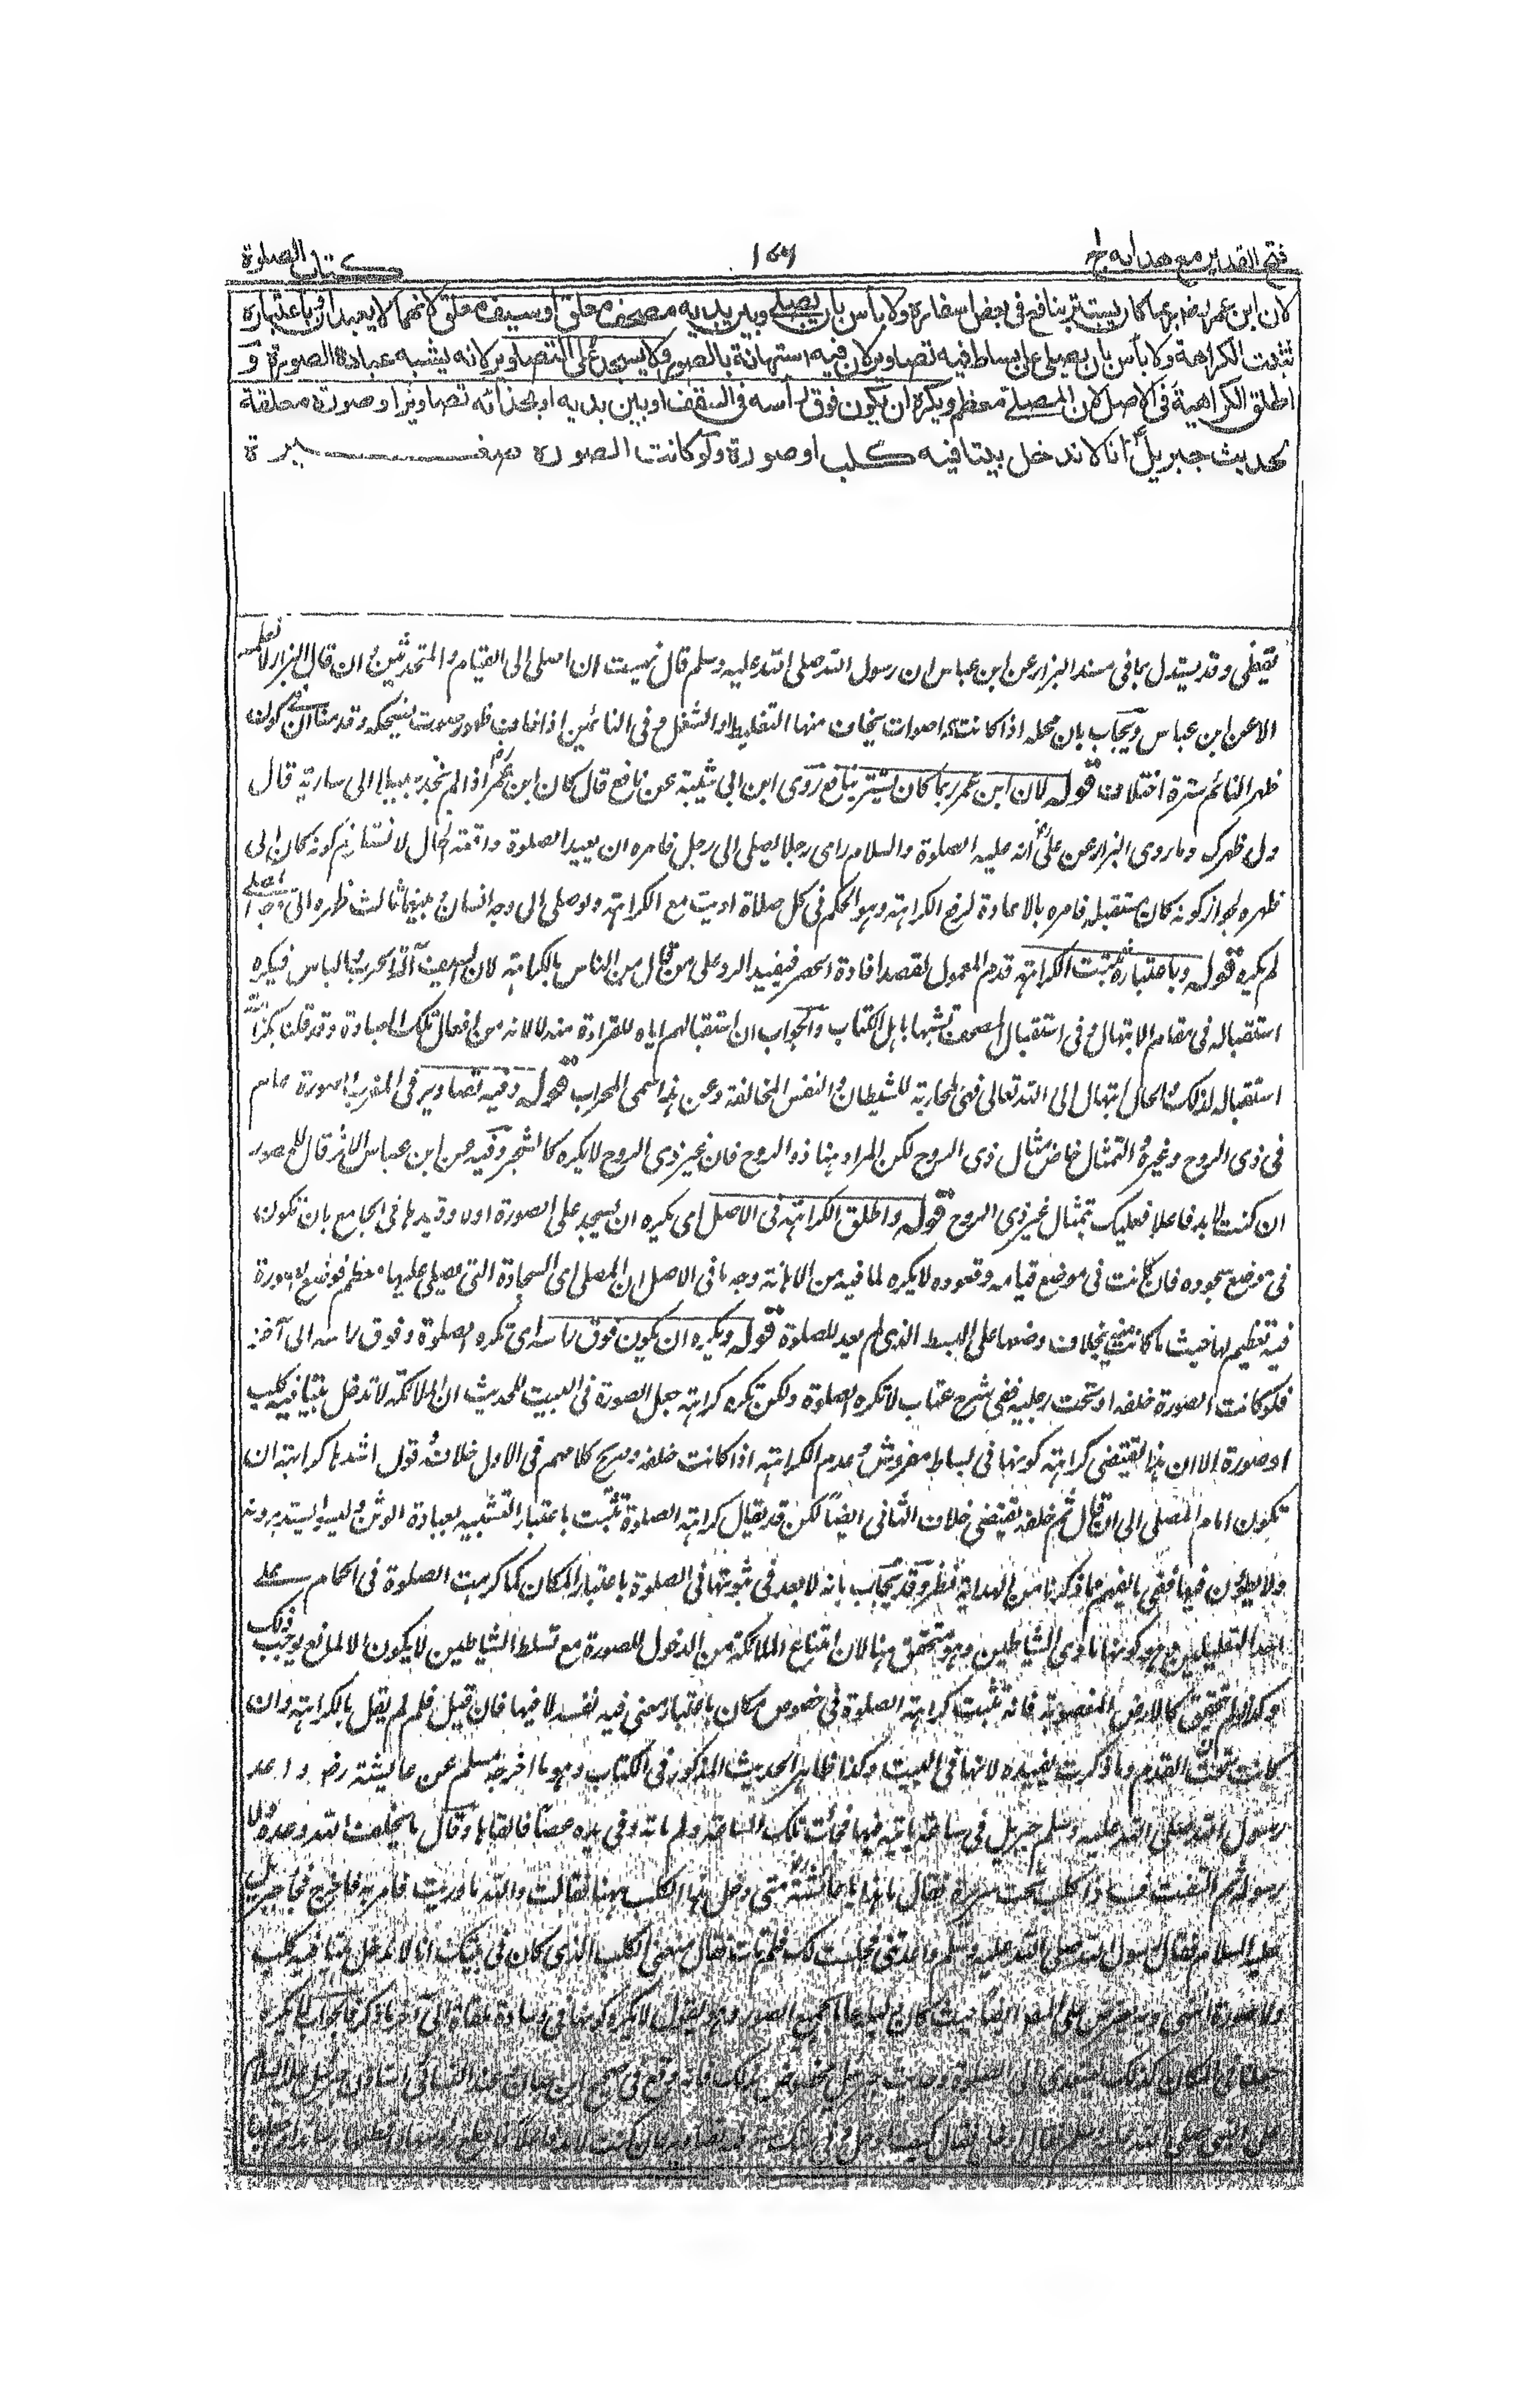 فتح القدير مع هدايه ج ١
كتاب الصلوة
لان ابن عمر رضـ ربما كان يستتر بنافع فى بعض اسفاره ولا بأس بان يصلى وبين يديه مصحف معلق او سيف معلق لانهما لا يعبدان وباعتباره
تثبت الكراهة ولا بأس بان يصلى على بساط فيه تصاوير لان فيه استهانة بالصور ولا يسجد على التصاوير لانه يشبه عبادة الصورة و
اطلق الكراهية فى الاصل لان المصلى معظم ويكره ان يكون فوق رأسه فى السقف او بين يديه او بحذائه تصاوير او صورة معلقة
لحديث جبريل انا لا ندخل بيتا فيه كلب او صورة ولو كانت الصورة صغيرة
يقضى وقد يستدل بما فى مسند البزار عن ابن عباس ان رسول الله صلى الله عليه وسلم قال نهيت ان اصلى الى القيام والمتحدثين وان قال البزار لا نعلمه
الا عن ابن عباس ويجاب بان محله اذا كانت اصوات يخاف منها التغليط او الشغل وفى النائمين اذا خاف ظهور صوت يضحكه وقد منا ان فى كون
ظهر النائم سترة اختلاف قوله لان ابن عمر ربما كان يستتر بنافع روى ابن ابى شيبة عن نافع قال كان ابن عمر رضـ اذا لم يجد سبيلا الى سارية قال
ول ظهرك وما روى البزار عن على انه عليه الصلوة والسلام راى رجلا يصلى الى رجل فامره ان يعيد الصلوة واقعة حال لا تستلزم كونه كان الى
ظهره لجواز كونه كان مستقبله فامره بالاعادة لرفع الكراهة وهو الحكم فى كل صلاة اديت مع الكراهة ولو صلى الى وجه انسان وبينهما ثالث ظهره الى وجه المصلى
لم يكره قوله وباعتباره تثبت الكراهة قدم المعمول لقصد افادة الحصر فيفيد الرد على من قال من الناس بالكراهة لان السيف آلة الحرب والباس فيكره
استقباله فى مقام الابتهال وفى استقبال المصحف تشبها باهل الكتاب والجواب ان استقبالهم اياه للقراءة منه لا لانه من افعال تلك العبادة وقد قلنا بكراهة
استقباله لذلك والحال ابتهال الى الله تعالى فهى لمحاربة للشيطان والنفس المخالفة وعن هذا سمى المحراب قوله وفيه تصاوير فى المغرب الصورة عام
فى ذى الروح وغيره والتمثال خاص بمثال ذى الروح لكن المراد هنا ذو الروح فان غير ذى الروح لا يكره كالشجر وفيه عن ابن عباس الاثر قال للمصور
ان كنت لا بد فاعلا فعليك بتمثال غير ذى الروح قوله واطلق الكراهة فى الاصل اى يكره ان يسجد على الصورة اولا وقيدها فى الجامع بان تكون
فى موضع سجوده فان كانت فى موضع قيامه وقعوده لا يكره لما فيه من الاهانة وجه ما فى الاصل ان المصلى اى السجادة التى يصلى عليها معظم فوضع الصورة
فيه تعظيم لها حيث ما كانت منه بخلاف وضعها على البسط الذى لم يعد للصلوة قوله ويكره ان يكون فوق راسه اى تكره الصلوة وفوق راسه الى آخره
فلو كانت الصورة خلفه او تحت رجليه ففى شرح عتاب لا تكره الصلوة ولكن تكره كراهة جعل الصورة فى البيت للحديث ان الملائكة لا تدخل بيتا فيه كلب
او صورة الا ان هذا يقتضى كراهة كونها فى بساط مفروش وعدم الكراهة اذا كانت خلفه وصريح كلامهم فى الاول خلافه وقول اشدها كراهة ان
تكون امام المصلى الى ان قال ثم خلفه يقتضى خلاف الثانى ايضا لكن قد يقال كراهة الصلوة تثبت باعتبار التشبيه بعبادة الوثن وليسوا يستدبرونه
ولا يطؤن فيها ففى ما يفهم مما ذكرنا من الهداية نظر وقد يجاب بانه لا بعد فى ثبوتها فى الصلوة باعتبار المكان كما كرهت الصلوة فى الحمام على
احد التعليلين وهو كونها ماوى الشياطين وهو متحقق هنا لان امتناع الملائكة من الدخول للصورة مع تسلط الشياطين لا يكون الا لمانع يوجب ذلك
كالارض المغصوبة فانه تثبت كراهة الصلوة فى خصوص مكان باعتبار معنى فيه نفسه لا فيها فان قيل فلم لم يقل بالكراهة وان
كانت تحت القدم وما ذكرت يفيده لانها فى البيت وكذا ظاهر الحديث المذكور فى الكتاب وهو ما اخرجه مسلم عن عائشة رضـ واعد
رسول الله صلى الله عليه وسلم جبريل فى ساعة ياتيه فيها فجائت تلك الساعة ولم ياته وفى يده عصا فالقاها وقال ما يخلف الله وعده ولا
رسوله ثم التفت فاذا كلب تحت سريره فقال ما هذا يا عائشة متى دخل هذا الكلب ههنا فقالت والله ما دريت فامر به فاخرج فجاء جبريل
عليه السلام فقال رسول الله صلى الله عليه وسلم واعدتنى فجلست لك فلم تات فقال منعنى الكلب الذى كان فى بيتك انا لا ندخل بيتا فيه كلب
ولا صورة